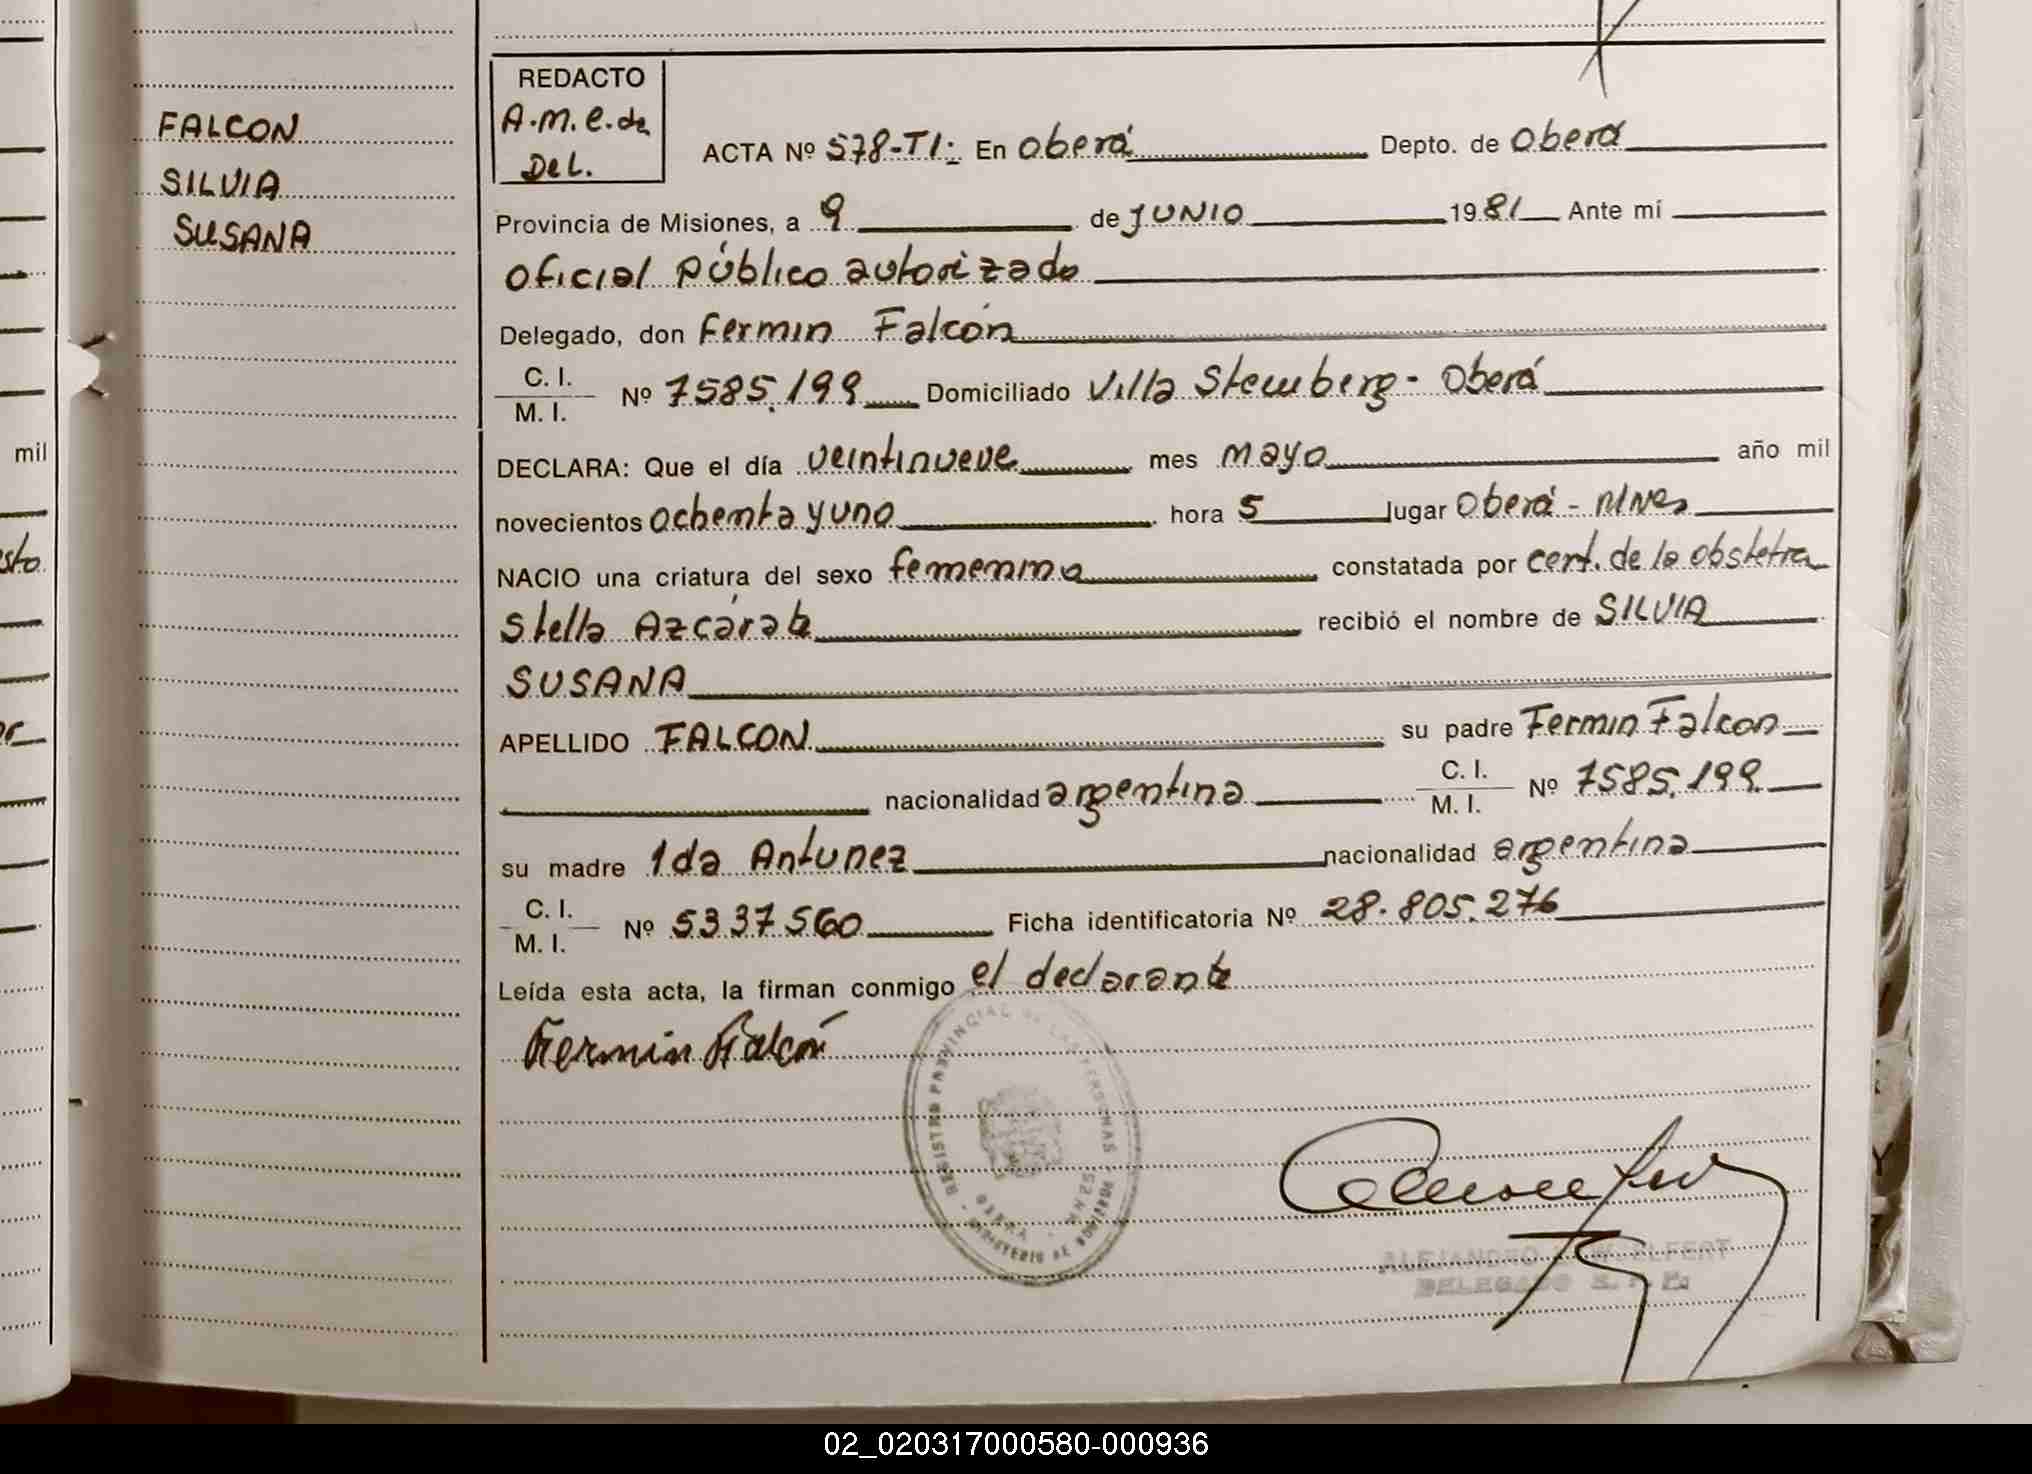 FALCON
SILVIA
SUSANA
mil
sto
or
REDACTO
A.M.E. de
Del.
ACTA Nº 578-TI: En Oberá Depto. de Oberá
Provincia de Misiones, a 9 de JUNIO 1981 Ante mí
Oficial Público autorizado
Delegado, don Fermin Falcón
C. I.
M. I. Nº 7585.199 Domiciliado Villa Stemberg - Oberá
DECLARA: Que el día veintinueve mes mayo año mil
novecientos ochenta y uno hora 5 lugar Oberá - Mnes
NACIO una criatura del sexo femenino constatada por cert. de la obstetra
Stella Azcárate recibió el nombre de SILVIA
SUSANA
APELLIDO FALCON su padre Fermin Falcon
nacionalidad argentina C. I.
M. I. Nº 7585.199
su madre Ida Antunez nacionalidad argentina
C. I.
M. I. Nº 5337560 Ficha identificatoria Nº 28.805.276
Leída esta acta, la firman conmigo el declarante
Fermin Falcón
REGISTRO PROVINCIAL DE LAS PERSONAS
OBERA
MINISTERIO DE
ALEJANDRO
DELEGADO
02_020317000580-000936